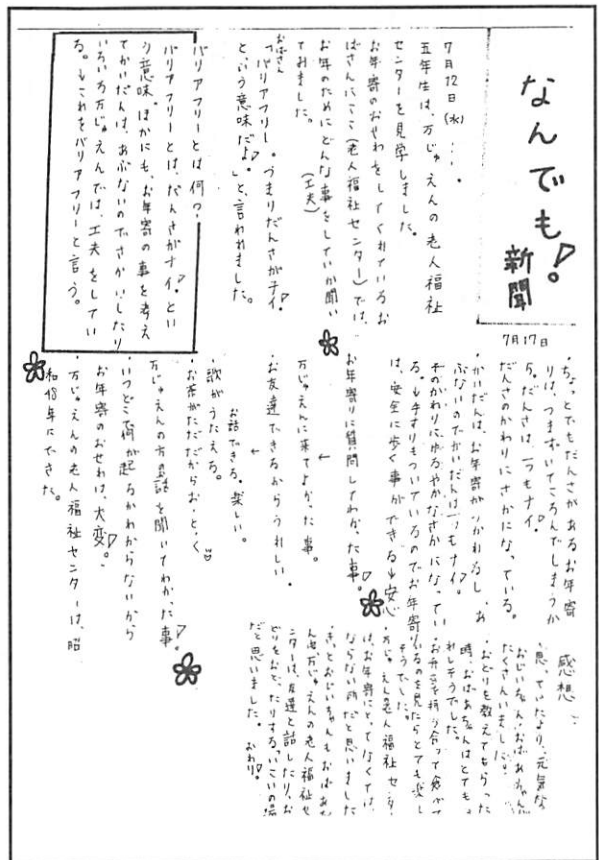 なんでも!
新聞
7月17日
7月12日(水)...
五年生は、万じゅえんの老人福祉
センターを見学しました。
お年寄のおせわをしてくれているお
ばさんにここ(老人福祉センター)では、
お年のためにどんな事をしていか聞い
(工夫)
てみました。
おばさん
「バリアフリー。つまりだんさがナイ!
という意味だよ!」と、言われました。
バリアフリーとは何?
バリアフリーとは、だんさがナイ!とい
う意味。ほかにも、お年寄の事を考え
てかいだんは、あぶないのでさかいしたり
いろいろ万じゅえんでは、工夫をしてい
る。↓これをバリアフリーと言う。
・ちょっとでもだんさがあるお年寄
りは、つまずいてころんでしまうか
ら。だんさは、一つもナイ!
だんさのかわりにさかになっている。
・かいだんは、お年寄がつかれるし、あ
ぶないのでかいだんは一つもナイ!。
そのかわりにゆるやかなさかになってい
る。↓手すりもついているのでお年寄り
は、安全に歩く事ができる↓安心
お年寄りに質問してわかった事。!
万じゅえんに来てよかった事。
↓
お友達できるからうれしい。
↓
お話できる。楽しい。
・歌がうたえる。
・お茶がただだからおっとく
万じゅえんの方の話を聞いてわかった事!。
・いつどこで何が起るかわからないから
お年寄のおせわは、大変!。
・万じゅえんの老人福祉センターは、昭
和48年にできた。
感想
・思っていたより、元気な
おじいちゃん・おばあちゃんが
たくさんいました!。
・おどりを教えてもらった
時、おばあちゃんはとても
れしそうでした。
・お弁当を持ち合って食べて
いるのを見たらとても楽し
そうでした。
・万じゅえんの老人福祉センター
は、お年寄にとってなくては、
ならない所だと思いました
きっとおじいちゃんもおばあち
んも万じゅえんの老人福祉セ
ンターは、友達と話したり、お
どりをおどったりする、いこいの場
だと思いました。おわり!。